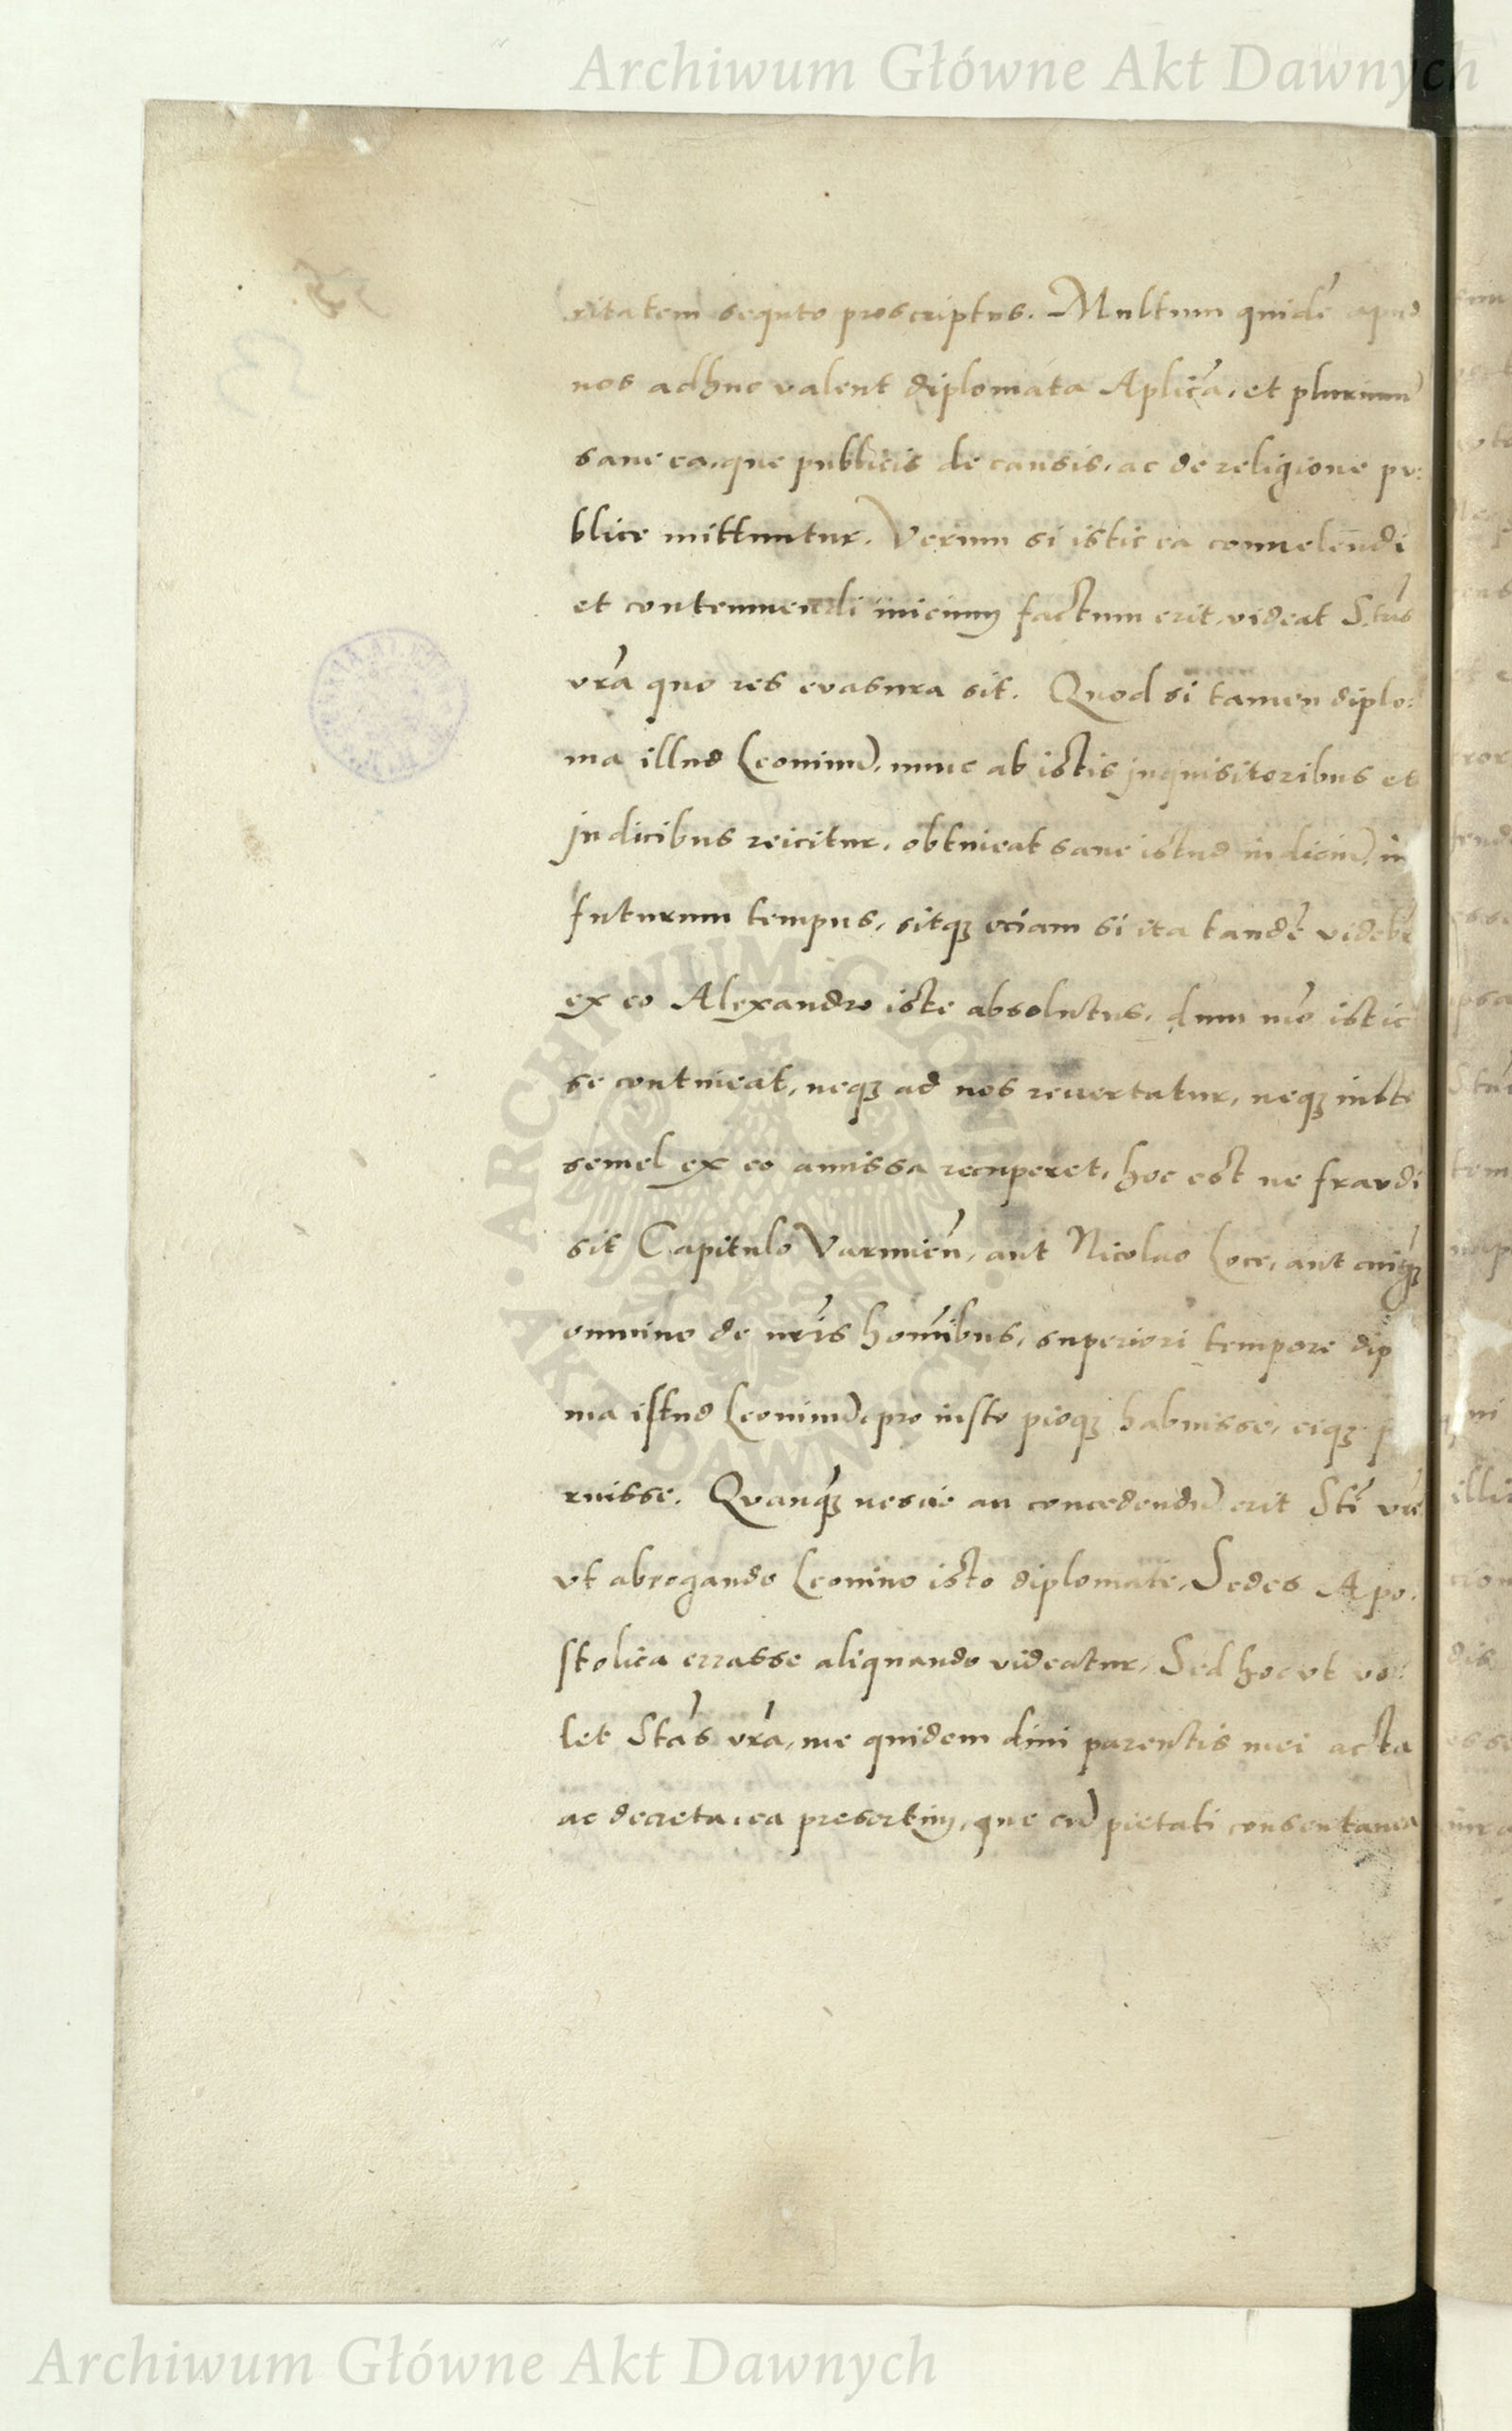 Archiwum Główne Akt Dawnych
ritatem sequto proscriptus. Multum quidē apud
nos adhuc valent diplomata Aplica, et plurimū
sane ea, que publicis de causis, ac de religione pu:
blice mittuntur. Verum si istic ea convelendi
et contemnendi inicium factum erit, videat Stas
vra quo res evasura sit. Quod si tamen diplo:
ma illud Leoninū, nunc ab istis inquisitoribus et
judicibus reicitur, obtineat sane istud iudiciū, in
futurum tempus, sitq3 eciam si ita tandē videbr
ex eo Alexandro iste absolutus, dum mo istic
se contineat, neq3 ad nos revertatur, neq3 iuste
semel ex eo amissa recuperet, hoc est ne fraudi
sit Capitulo Varmień, aut Nicolao Loce, aut cuiq3
omnino de nris hominibus, superiori tempore dip
ma istud Leoninū, pro iusto pioq3 habuisse, eiq3 p
ruisse. Quanq3 nescio an concedendū erit Sti vre
vt abrogando Leonino isto diplomate, Sedes Apo:
stolica errasse aliquando videatur. Sed hoc vt vo:
let Stas vra, me quidem divi parentis mei acta
ac decreta, ea presertim, que cū pietati consentanea
ARCHIWUM GŁÓWNE
AKT DAWNYCH
Archiwum Główne Akt Dawnych